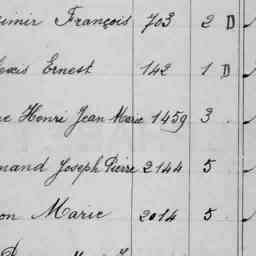 imir François 703 2 D
exis Ernest 142 1 D
e Henri Jean Marie 1459 3
mand Joseph Pierre 2144 5
on Marie 2014 5